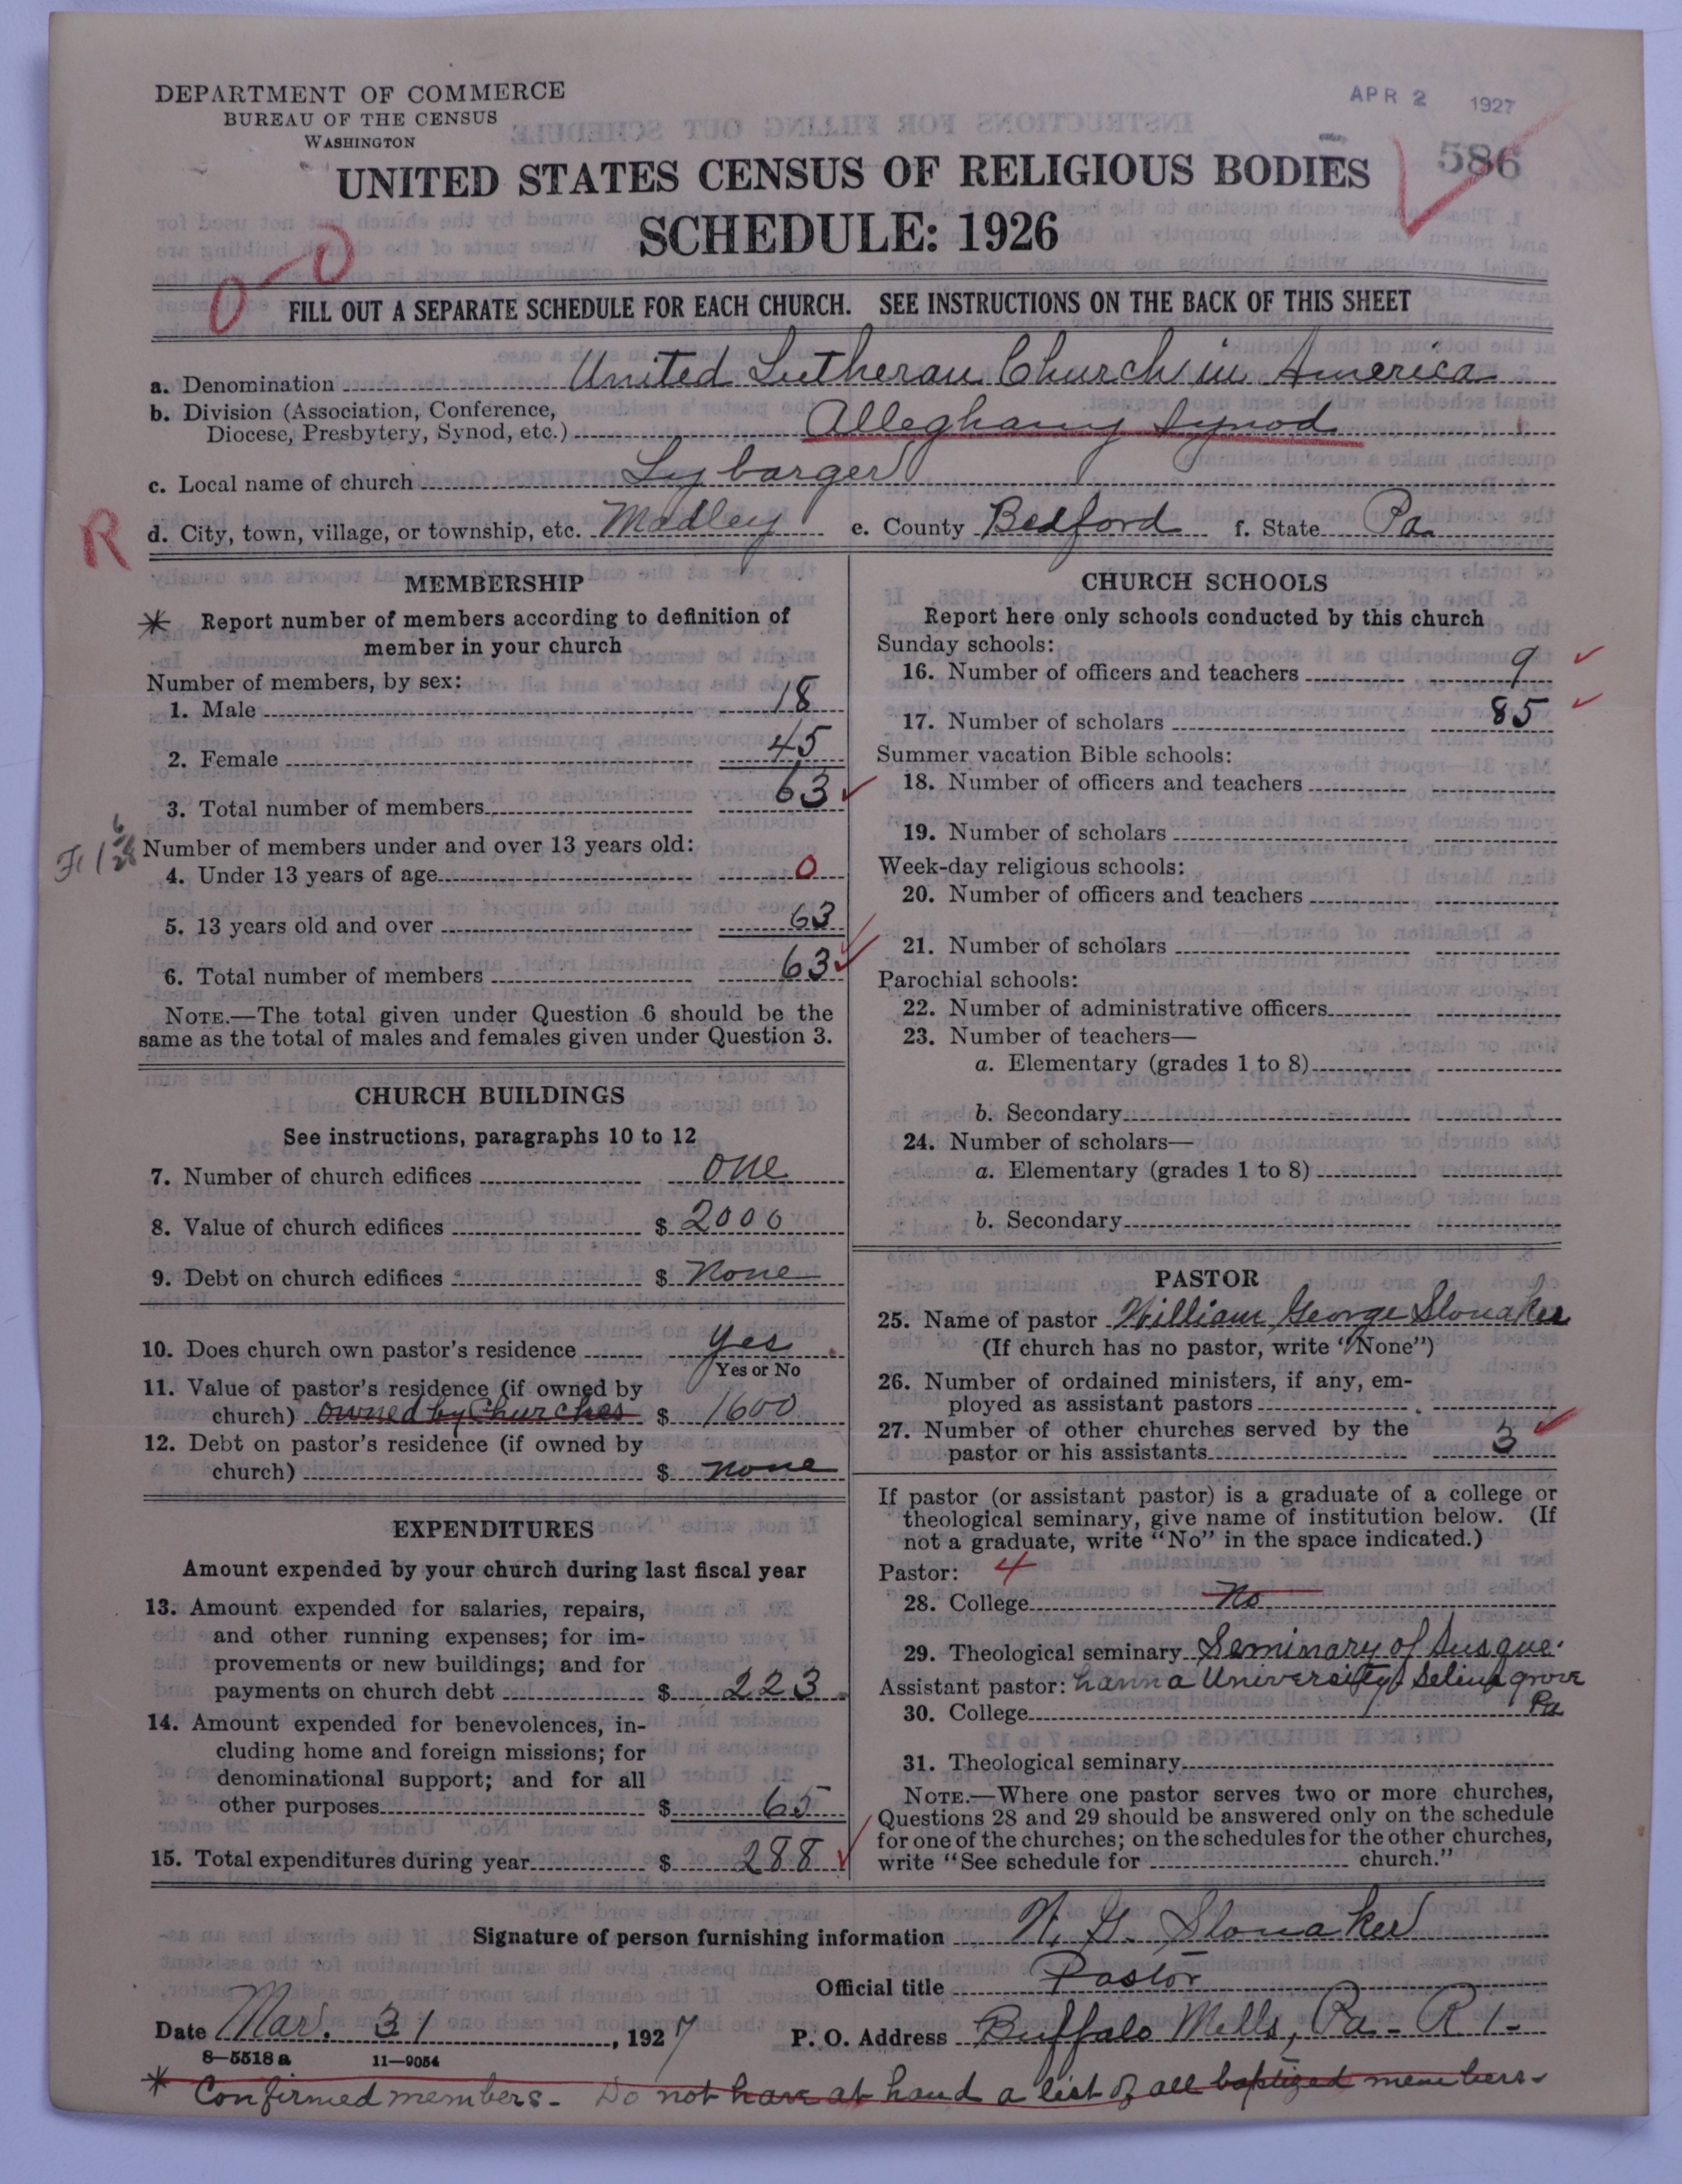 DEPARTMENT OF COMMERCE
BUREAU OF THE CENSUS
WASHINGTON
APR 2 1927
586
UNITED STATES CENSUS OF RELIGIOUS BODIES
SCHEDULE: 1926
0-0
FILL OUT A SEPARATE SCHEDULE FOR EACH CHURCH. SEE INSTRUCTIONS ON THE BACK OF THIS SHEET
a. Denomination United Lutheran Church in America
b. Division (Association, Conference,
Diocese, Presbytery, Synod, etc.) Alleghany Synod
c. Local name of church Lybarger
R
d. City, town, village, or township, etc. Madley e. County Bedford f. State Pa.
MEMBERSHIP
* Report number of members according to definition of
member in your church
Number of members, by sex:
1. Male 18
2. Female 45
3. Total number of members 63
Number of members under and over 13 years old:
4. Under 13 years of age 0
5. 13 years old and over 63
6. Total number of members 63
NOTE.—The total given under Question 6 should be the
same as the total of males and females given under Question 3.
CHURCH BUILDINGS
See instructions, paragraphs 10 to 12
7. Number of church edifices one
8. Value of church edifices $ 2000
9. Debt on church edifices $ None
10. Does church own pastor's residence yes
Yes or No
11. Value of pastor's residence (if owned by
church) owned by Churches $ 1600
12. Debt on pastor's residence (if owned by
church) $ none
EXPENDITURES
Amount expended by your church during last fiscal year
13. Amount expended for salaries, repairs,
and other running expenses; for im-
provements or new buildings; and for
payments on church debt $ 223
14. Amount expended for benevolences, in-
cluding home and foreign missions; for
denominational support; and for all
other purposes $ 65
15. Total expenditures during year $ 288
CHURCH SCHOOLS
Report here only schools conducted by this church
Sunday schools:
16. Number of officers and teachers 9
17. Number of scholars 85
Summer vacation Bible schools:
18. Number of officers and teachers
19. Number of scholars
Week-day religious schools:
20. Number of officers and teachers
21. Number of scholars
Parochial schools:
22. Number of administrative officers
23. Number of teachers—
a. Elementary (grades 1 to 8)
b. Secondary
24. Number of scholars—
a. Elementary (grades 1 to 8)
b. Secondary
PASTOR
25. Name of pastor William George Slonaker
(If church has no pastor, write "None")
26. Number of ordained ministers, if any, em-
ployed as assistant pastors
27. Number of other churches served by the
pastor or his assistants 3
If pastor (or assistant pastor) is a graduate of a college or
theological seminary, give name of institution below. (If
not a graduate, write "No" in the space indicated.)
Pastor: 4
28. College No
29. Theological seminary Seminary of Susque-
Assistant pastor: hanna University Selinsgrove
30. College Pa
31. Theological seminary
NOTE.—Where one pastor serves two or more churches,
Questions 28 and 29 should be answered only on the schedule
for one of the churches; on the schedules for the other churches,
write "See schedule for church."
Signature of person furnishing information W. G. Slonaker
Official title Pastor
Date Mar. 31, 1927 P. O. Address Buffalo Mills, Pa - R 1-
8-5518a 11-9054
* Confirmed members - Do not have at hand a list of all baptized members-